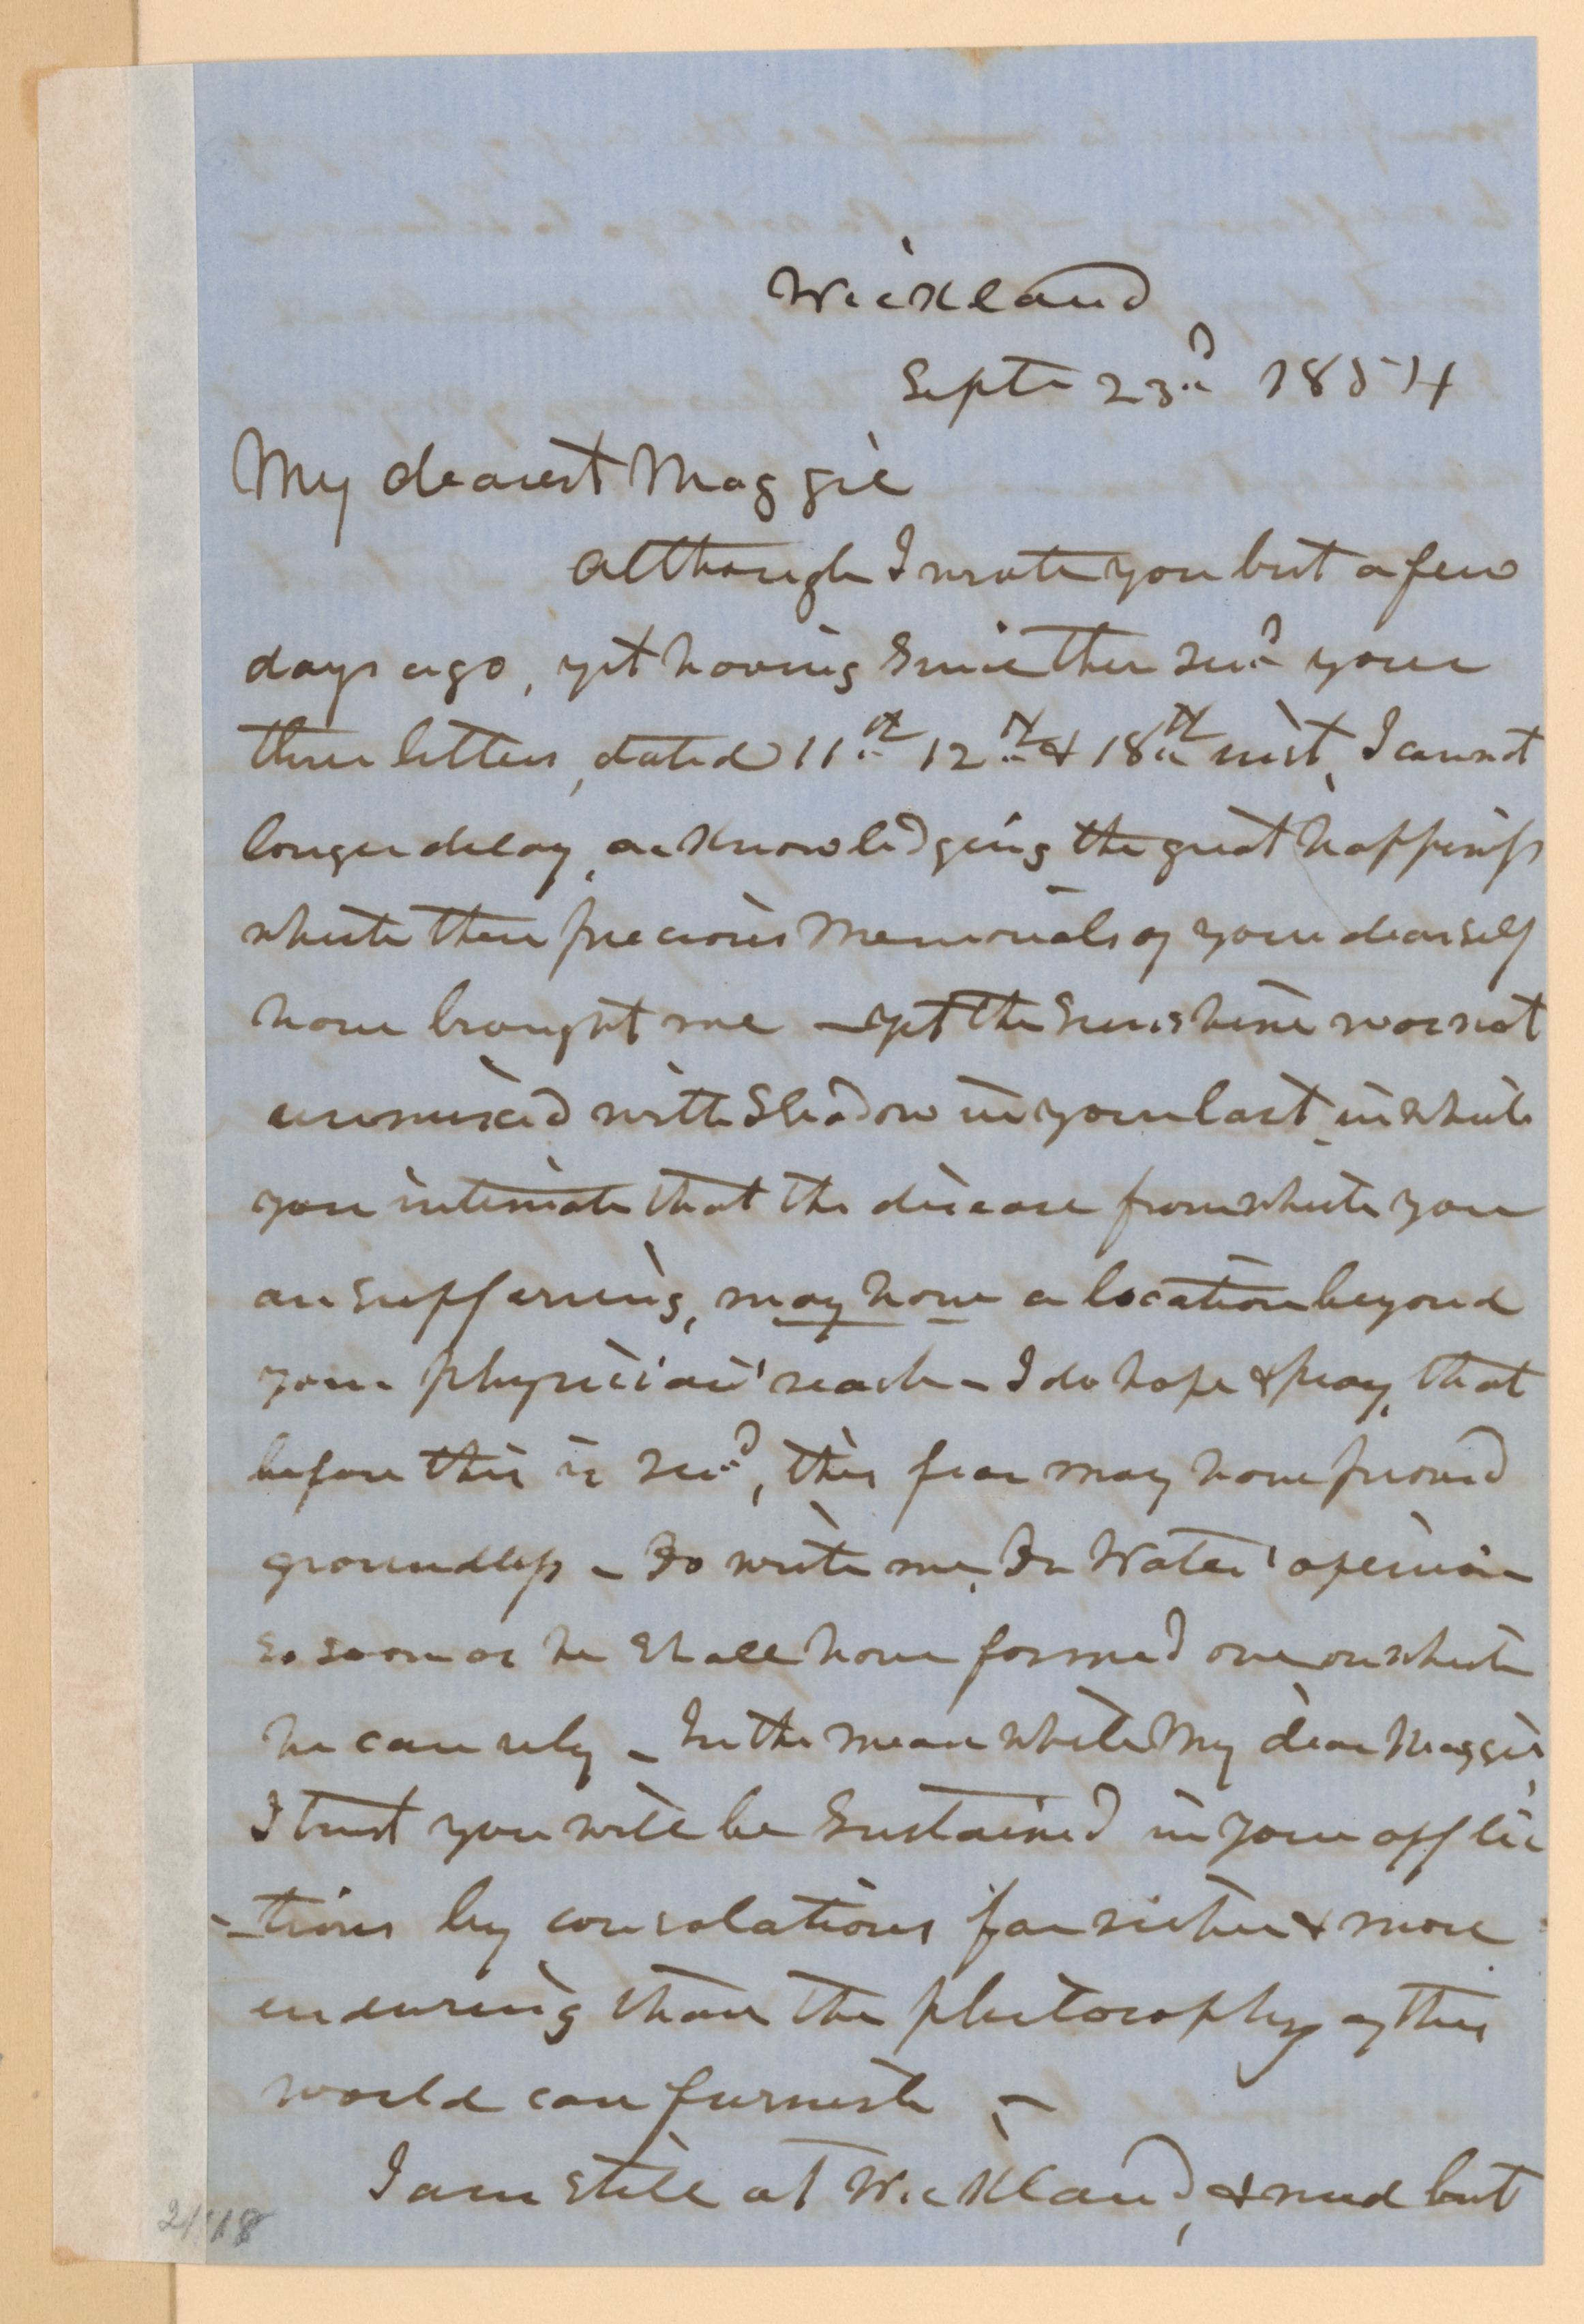 Wickland
Septr 23rd 1854
My dearest Maggie
Although I wrote you but a few
days ago, yet having since then recd your
three letters, dated 11th 12th & 18th inst, I cannot
longer delay, acknowledging the great happiness
which these precious memorials of your dear self
have brought me – yet the sunshine was not
unmixed with shadow in your last, in which
you intimate that the disease from which you
are suffering, may have a location beyond
your physician's reach – I do hope & pray, that
before this is recd, this fear may have proved
groundless – Do write me, Dr Wates' opinion
so soon as he shall have formed one on which
he can rely – In the mean while My dear Maggie,
I trust you will be sustained in your afflic
-tions by consolations far richer & more
enduring than the philosophy of this
world can furnish –
I am still at Wickland, & need but
18